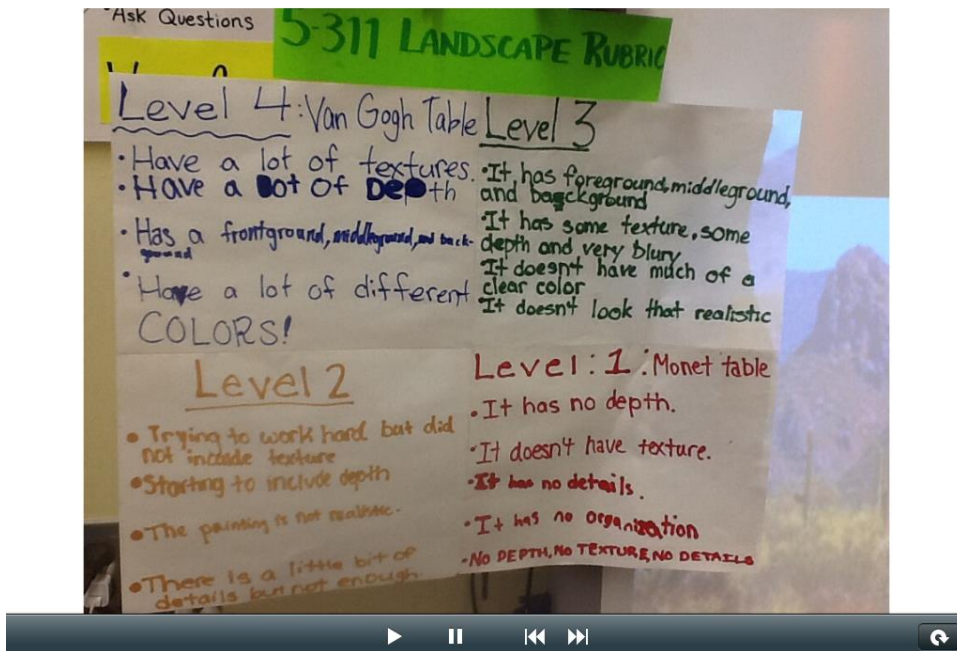 Ask Questions
5-311 LANDSCAPE RUBRIC
Level 4: Van Gogh Table
• Have a lot of textures.
• Have a Lot Of Depth
• Has a frontground, middleground, and back-
ground
• Have a lot of different
COLORS!
Level 3
• It has foreground, middleground,
and background
• It has some texture, some
depth and very blury
It doesn't have much of a
clear color
• It doesn't look that realistic
Level 2
• Trying to work hard but did
not include texture
• Starting to include depth
• The painting is not realistic.
• There is a little bit of
details but not enough.
Level: 1: Monet table
• It has no depth.
• It doesn't have texture.
• It has no details.
• It has no organization
• NO DEPTH, NO TEXTURE, NO DETAILS